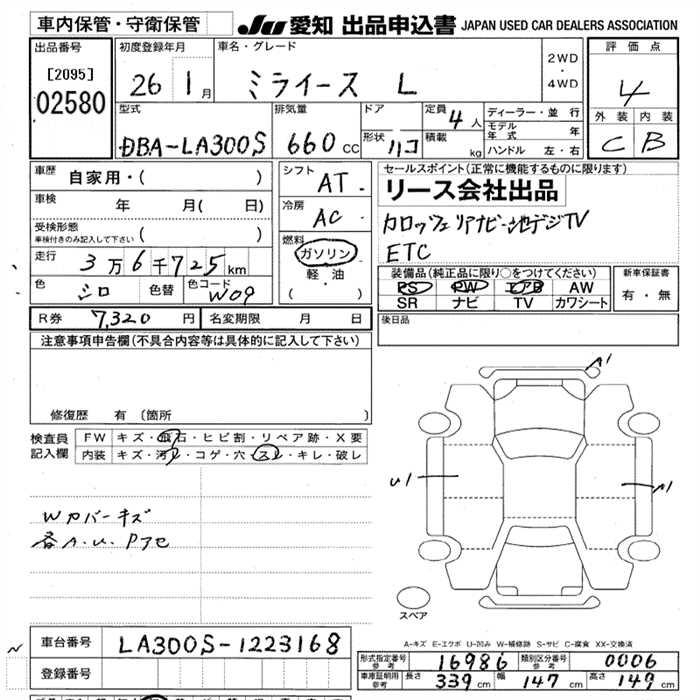 車内保管・守衛保管
JU 愛知 出品申込書 JAPAN USED CAR DEALERS ASSOCIATION
出品番号
[2095]
02580
初度登録年月
26 1月
車名・グレード
ミライース L
2WD
・
4WD
評価点
4
外装 内装
C B
型式
DBA-LA300S
排気量
660cc
ドア
形状 ハコ
定員 4人
積載 kg
ディーラー・並行
モデル年式 年
ハンドル 左・右
車歴 自家用・( )
車検 年 月( 日)
受検形態
車検付きのみ記入して下さい ( )
走行 3万6千725km
色 シロ 色替 色コード W09
シフト AT
冷房 AC
燃料
ガソリン
軽・油
( )
セールスポイント(正常に機能するものに限ります)
リース会社出品
カロッツェリアナビ・地デジTV
ETC
装備品(純正品に限り○をつけてください)
PS PW エアB AW
SR ナビ TV カワシート
新車保証書
有・無
R券 7,320円 名変期限 月 日
後日品
注意事項申告欄(不具合内容等は具体的に記入して下さい)
修復歴 有 (箇所 )
検査員
記入欄
FW キズ・飛石・ヒビ割・リペア跡・X要
内装 キズ・汚レ・コゲ・穴・スレ・キレ・破レ
Wカバーキズ
各A.U.Pアセ
A1
U1
A1
スペア
A-キズ E-エクボ U-凹み W-補修跡 S-サビ C-腐食 XX-交換済
車台番号 LA300S-1223168
登録番号
形式指定番号
参考 16986
類別区分番号
参考 0006
車庫証明用
参考 長さ 339cm 幅 147cm 高さ 149cm